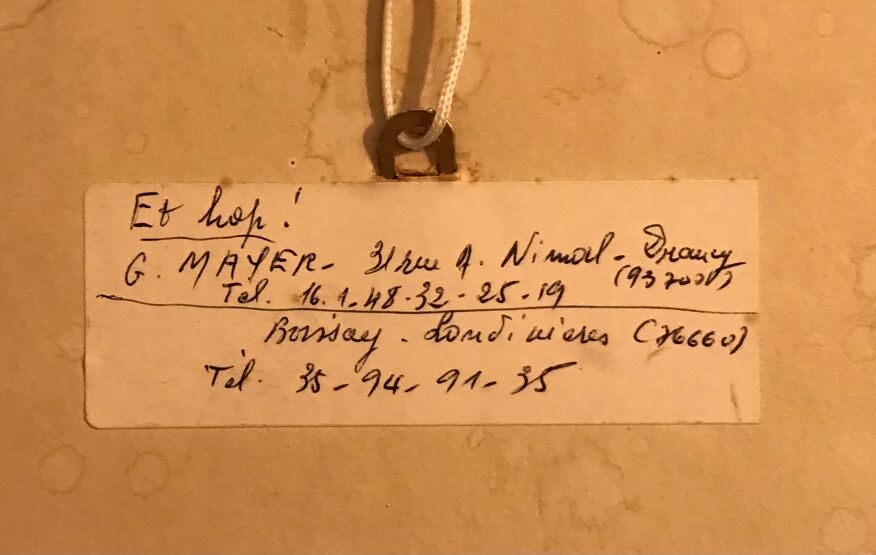 Et hop!
G. MAYER - 31 rue A. Nimal - Drancy
(93700)
Tél. 16.1-48-32-25-19
Boissay - Londinières (76660)
Tél. 35-94-91-35